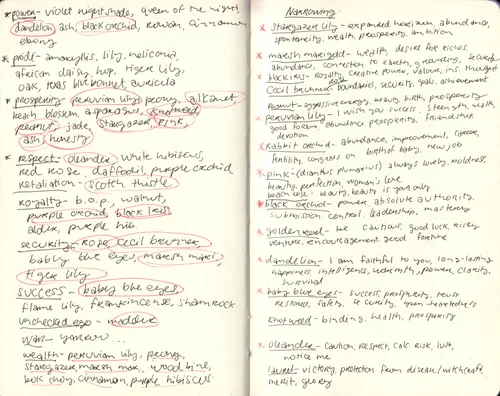 * power- violet nightshade, queen of the night,
dandelion ash, black orchid, rowan, cinnamon
ebony
* pride- amaryllis, lily, heliconia,
african daisy, hop, tiger lily,
oak, texas bluebonnet, auricula
* prosperity- peruvian lily, peony, alkanet,
beach blossom, asparagus, knotweed
peanut, jade, stargazer, pink,
ash, honesty
* respect- oleander, white hibiscus,
red rose, daffodil, purple orchid
retaliation- scotch thistle
royalty- b.o.p., walnut,
purple orchid, black iris,
alder, purple hib.
security- rose cecil brunner,
baby blue eyes, marsh mari,
tiger lily
success- baby blue eyes,
flame lily, frankincense, shamrock
unchecked ego- madder
war- yarrow...
wealth- peruvian lily, peony,
stargazer, marsh mar, woodbine,
bok choy, cinnamon, purple hibiscus
Narrowing
* stargazer lily- expanded horizons, abundance,
spontaneity, wealth, prosperity, ambition
* marsh marigold- wealth, desire for riches,
abundance, connection to earth, grounding, security
Black iris- royalty, creative power, valour,
Cecil brunner- boundaries, security, goals, achievement
Peanut- aggressive energy, beauty, birth, prosperity
* peruvian lily- I wish you success, strength, wealth,
good fortune, abundance, prosperity, friendship
devotion
* Rabbit orchid- abundance, improvement, career,
fertility, congrats on birth of baby, new job
* pink- (dianthus plumarius) always lovely, boldness,
beauty, perfection, woman's love
beauty is your only
* black orchid- power, absolute authority,
submission, control, leadership, mastery
* goldenrod- be cautious, good luck, risky
venture, encouragement, good fortune
* dandelion- I am faithful to you, long-lasting
happiness, intelligence, warmth, power, clarity,
survival
* baby blue eyes- success, prosperity, trust
restored, safety, security, open-heartedness
knotweed- binding, health, prosperity
* oleander- caution, respect, calc. risk, lust,
notice me
laurel- victory, protection from disease/witchcraft,
merit, glory